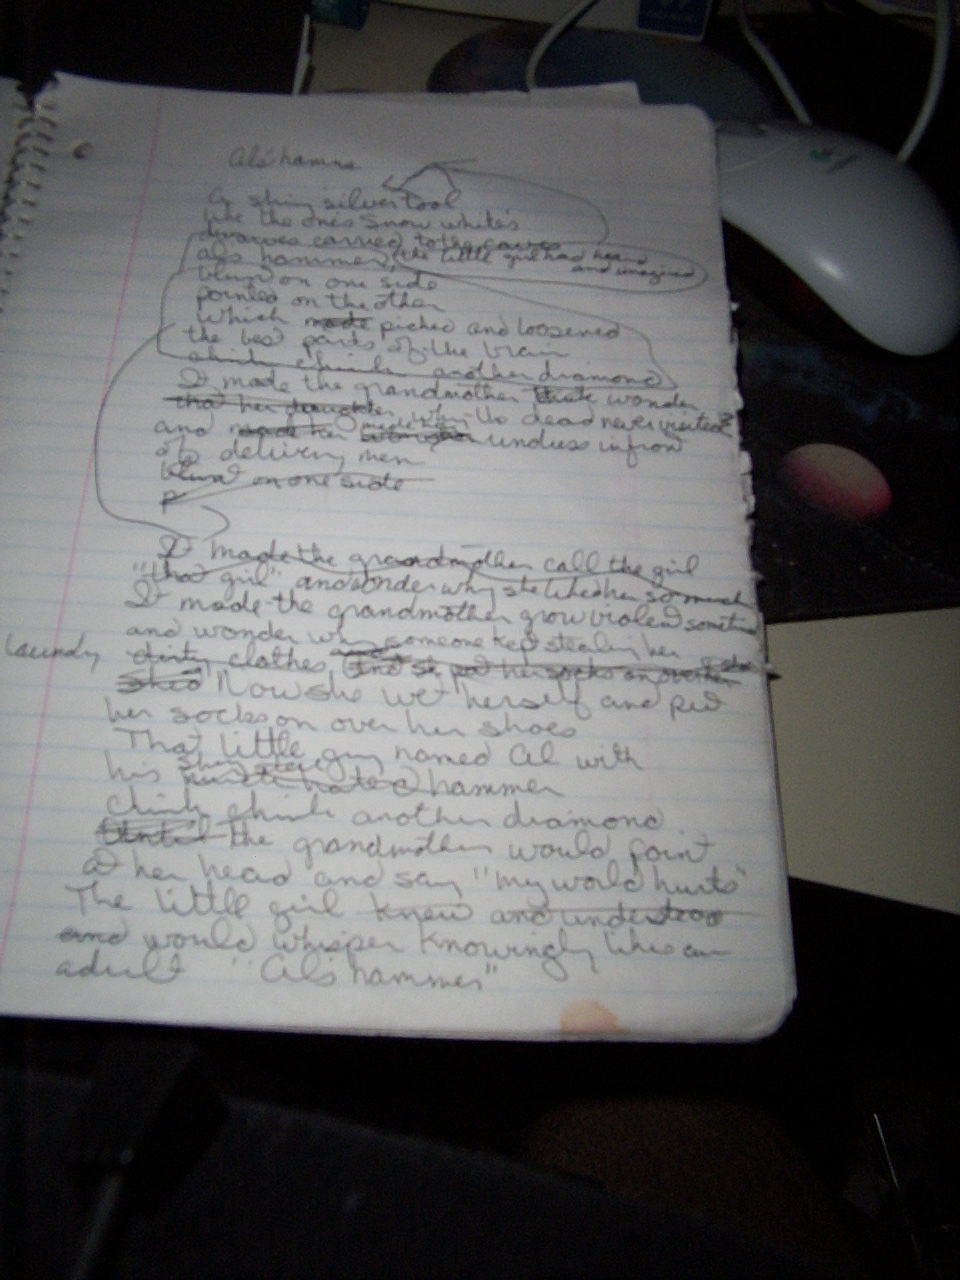 Al's hamme
A shiny silver tool
like the ones Snow white's
dwarves carried to the caves
als hammer, the little girl had heard
and imagined
blunt on one side
pointed on the other
which made picked and loosened
the best parts of the brain
chink chink another diamond
It made the grandmother wonder
that her daughter why the dead never visited?
and made her undress in front
of delivery men
blunt on one side
P
It made the grandmother call the girl
"that girl" and wonder why she liked her so much
It made the grandmother grow violent sometimes
and wonder why someone kept stealing her
Laundry
dirty clothes and she put her socks on over her
shoes Now she wet herself and put
her socks on over her shoes
That little guy named Al with
his shiny steely hammer
chink chink another diamond
Until the grandmother would point
at her head and say "my world hurts"
The little girl knew and understood
and would whisper knowingly like an
adult "Al's hammer"